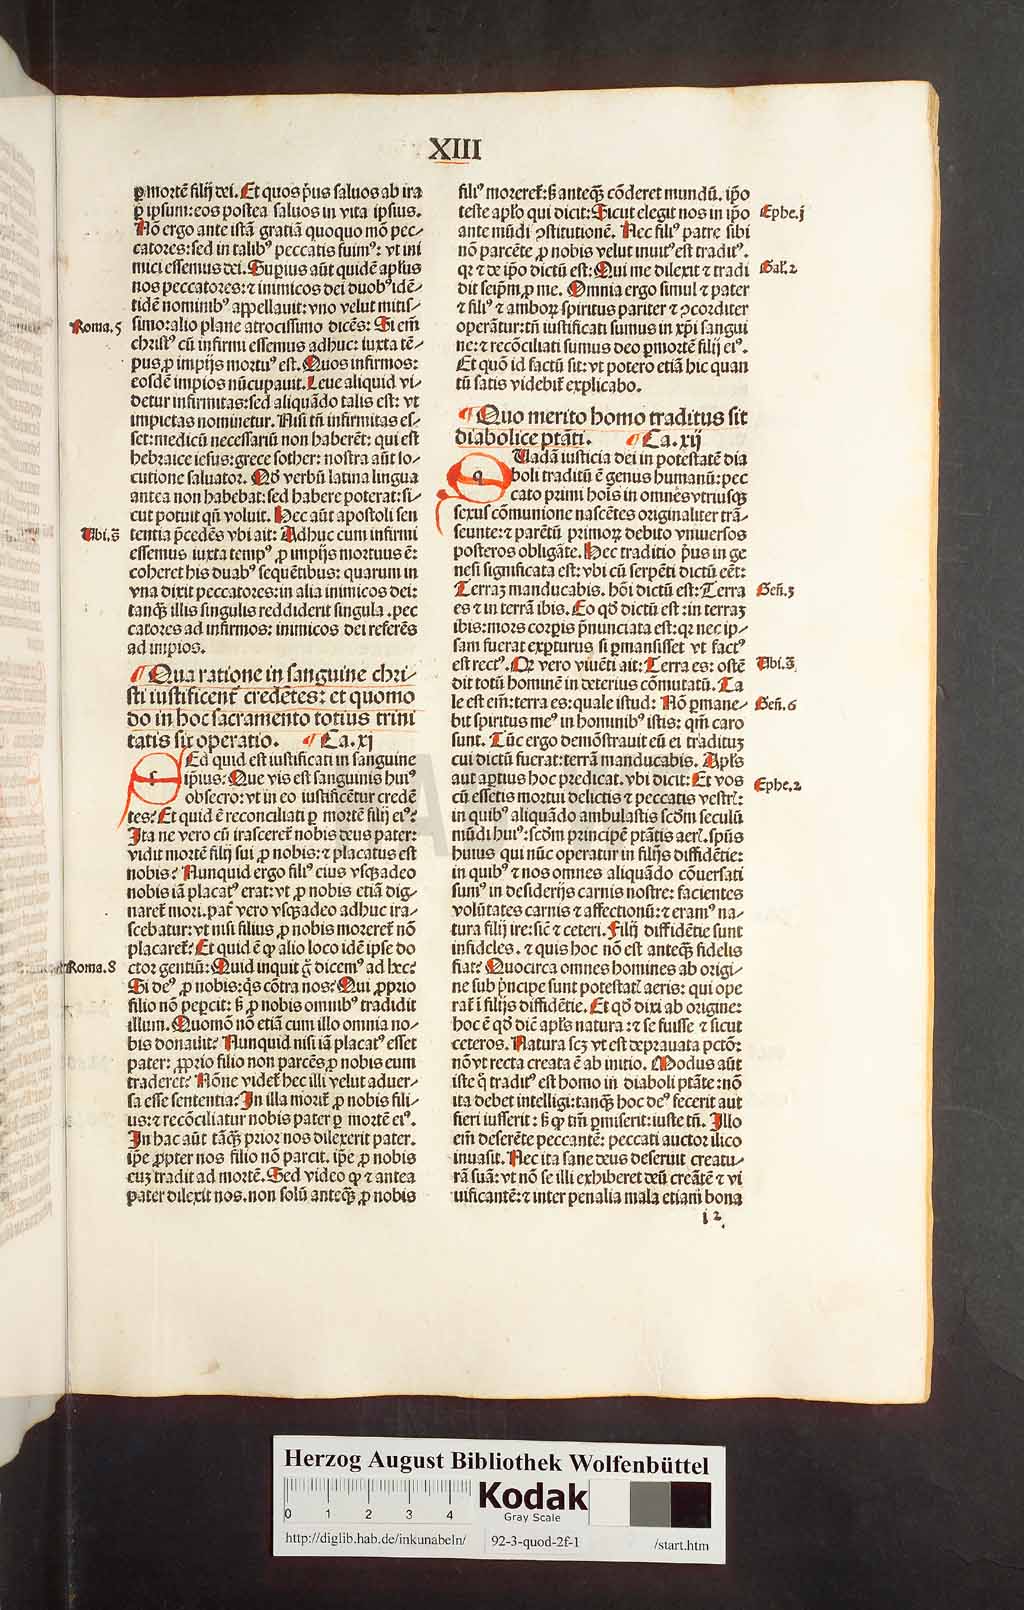 XIII
ꝑ mortē filij dei. Et quos p̄us saluos ab ira
ꝑ ipsum: eos postea saluos in vita ipsius.
Nō ergo ante istā gratiā quoquo mō pec⸗
catores: sed in talibꝰ peccatis fuimꝰ: vt ini
mici essemus dei. Suꝑius aūt quidē apl̄us
nos peccatores: ⁊ inimicos dei duobꝰ idē⸗
tidē nominibꝰ appellauit: vno velut mitis⸗
Roma.5
simo: alio plane atrocissimo dicēs: Si em̄
christꝰ cū infirmi essemus adhuc: iuxta tē⸗
pus ꝓ impijs mortuꝰ est. Quos infirmos:
eosdē impios nūcupauit. Leue aliquid vi⸗
detur infirmitas: sed aliquādo talis est: vt
impietas nominetur. Nisi tn̄ infirmitas es⸗
set: medicū necessariū non haberēt: qui est
hebraice iesus: grece sother: nostra aūt lo⸗
cutione saluator. Qd̄ verbū latina lingua
antea non habebat: sed habere poterat: si⸗
cut potuit qn̄ voluit. Hec aūt apostoli sen
Ubi.s̄
tentia p̄cedēs vbi ait: Adhuc cum infirmi
essemus iuxta tempꝰ ꝓ impijs mortuus ē:
coheret his duabꝰ sequētibus: quarum in
vna dixit peccatores: in alia inimicos dei:
tanqꝫ illis singulis reddiderit singula. pec
catores ad infirmos: inimicos dei referēs
ad impios.
¶ Qua ratione in sanguine chri⸗
sti iustificent̄ credētes: et quomo
do in hoc sacramento totius trini
tatis sit operatio. ¶ Ca.xi
f
Ed quid est iustificati in sanguine
ip̄ius: Que vis est sanguinis huiꝰ
obsecro: vt in eo iustificētur credē
tes? Et quid ē reconciliati ꝑ mortē filij eiꝰ?
Ita ne vero cū irasceret̄ nobis deus pater:
vidit mortē filij sui ꝓ nobis: ⁊ placatus est
nobis? Nunquid ergo filiꝰ eius vsqꝫadeo
nobis iā placatꝰ erat: vt ꝓ nobis etiā dig⸗
naret̄ mori. pat̄ vero vsqꝫadeo adhuc ira⸗
scebatur: vt nisi filius ꝓ nobis moreret̄ nō
placaret̄? Et quid ē ꝙ alio loco idē ipse do
Roma.8
ctor gentiū: Quid inquit g̊ dicemꝰ ad hec?
Si deꝰ ꝓ nobis: q̇s cōtra nos? Qui ꝓprio
filio nō peꝑcit: sꝫ ꝓ nobis omnibꝰ tradidit
illum. Quomō nō etiā cum illo omnia no⸗
bis donauit? Nunquid nisi iā placatꝰ esset
pater: ꝓprio filio non parcēs ꝓ nobis eum
traderet? Nōne videt̄ hec illi velut aduer⸗
sa esse sententia? In illa morit̄ ꝓ nobis fili⸗
us: ⁊ recōciliatur nobis pater ꝑ mortē eiꝰ.
In hac aūt tāqꝫ prior nos dilexerit pater.
ip̄e ꝓpter nos filio nō parcit. ip̄e ꝓ nobis
euꝫ tradit ad mortē. Sed video ꝙ ⁊ antea
pater dilexit nos. non solū anteqꝫ ꝓ nobis
filiꝰ moreret̄: sꝫ anteqꝫ cōderet mundū. ip̄o
Ephe.j
teste apl̄o qui dicit: Sicut elegit nos in ip̄o
ante mūdi ꝯstitutionē. Nec filiꝰ patre sibi
nō parcēte ꝓ nobis velut inuitꝰ est traditꝰ.
Gal̄.2
qꝛ ⁊ de ip̄o dictū est: Qui me dilexit ⁊ tradi
dit seip̄m ꝓ me. Omnia ergo simul ⁊ pater
⁊ filiꝰ ⁊ amboꝝ spiritus pariter ⁊ ꝯcorditer
operātur: tn̄ iustificati sumus in xp̄i sangui
ne: ⁊ recōciliati sumus deo ꝑ mortē filij eiꝰ.
Et quō id factū sit: vt potero etiā hic quan
tū satis videbit̄ explicabo.
¶ Quo merito homo traditus sit
diabolice ptāti. ¶ Ca.xij
q
Uadā iusticia dei in potestatē dia
boli traditū ē genus humanū: pec
cato primi hoīs in omnes vtriusqꝫ
sexus cōmunione nascētes originaliter trā⸗
seunte: ⁊ parētū primoꝝ debito vniuersos
posteros obligāte. Hec traditio p̄us in ge
nesi significata est: vbi cū serpēti dictū eēt:
Gen̄.3
Terraꝫ manducabis. hōi dictū est: Terra
es ⁊ in terrā ibis. Eo qd̄ dictū est: in terraꝫ
ibis: mors corꝑis p̄nunciata est: qꝛ nec ip⸗
sam fuerat exꝑturus si ꝑmansisset vt factꝰ
Ubi.s̄.
est rectꝰ. Qꝛ vero viuēti ait: Terra es: ostē
dit totū hominē in deterius cōmutatū. Ta
Gen̄.6
le est em̄: terra es: quale istud: Nō ꝑmane⸗
bit spiritus meꝰ in hominibꝰ istis: qm̄ caro
sunt. Tūc ergo demōstrauit eū ei tradituꝫ
cui dictū fuerat: terrā manducabis. Apl̄s
aut aꝑtius hoc predicat. vbi dicit: Et vos
Ephe.2
cū essetis mortui delictis ⁊ peccatis vestrꝭ:
in quibꝰ aliquādo ambulastis scd̄m seculū
mūdi huiꝰ: scd̄m principē ptātis aerꝭ. sp̄us
huius qui nūc operatur in filijs diffidētie:
in quibꝰ ⁊ nos omnes aliquādo cōuersati
sumꝰ in desiderijs carnis nostre: facientes
volūtates carnis ⁊ affectionū: ⁊ eramꝰ na⸗
tura filij ire: sic̄ ⁊ ceteri. Filij diffidētie sunt
infideles. ⁊ quis hoc nō est anteqꝫ fidelis
fiat? Quocirca omnes homines ab origi⸗
ne sub p̄ncipe sunt potestatꝭ aeris: qui ope
rat̄ ī filijs diffidētie. Et qd̄ dixi ab origine:
hoc ē qd̄ dic̄ apl̄s natura: ⁊ se fuisse ⁊ sicut
ceteros. Natura scꝫ vt est deprauata pctō:
nō vt recta creata ē ab initio. Modus aūt
iste q̊ traditꝰ est homo in diaboli ptāte: nō
ita debet intelligi: tanqꝫ hoc deꝰ fecerit aut
fieri iusserit: sꝫ ꝙ tm̄ ꝑmiserit: iuste tn̄. Illo
em̄ deserēte peccantē: peccati auctor ilico
inuasit. Nec ita sane deus deseruit creatu⸗
rā suā: vt nō se illi exhiberet deū creātē ⁊ vi
uificantē: ⁊ inter penalia mala etiam bona
i 2
Herzog August Bibliothek Wolfenbüttel
0 1 2 3 4
Kodak
Gray Scale
http://diglib.hab.de/inkunabeln/ 92-3-quod-2f-1 /start.htm